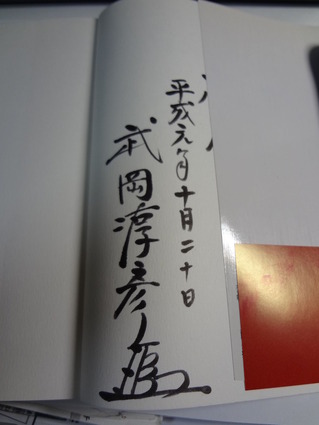 平成元年十月二十日
武岡淳彦